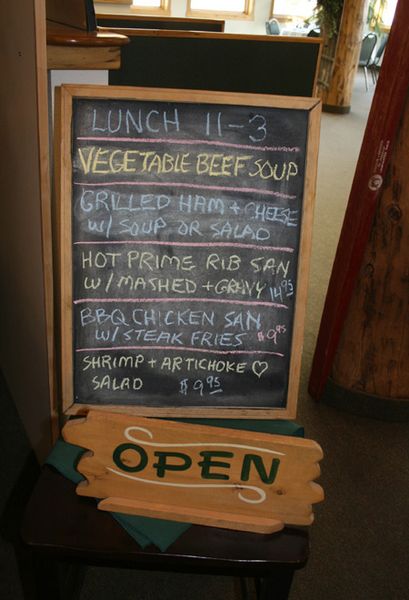 LUNCH 11-3
VEGETABLE BEEF SOUP
GRILLED HAM + CHEESE
W/ SOUP OR SALAD
HOT PRIME RIB SAN
W/ MASHED + GRAVY 14.95
BBQ CHICKEN SAN
W/ STEAK FRIES $9.95
SHRIMP + ARTICHOKE ♡
SALAD $9.95
OPEN